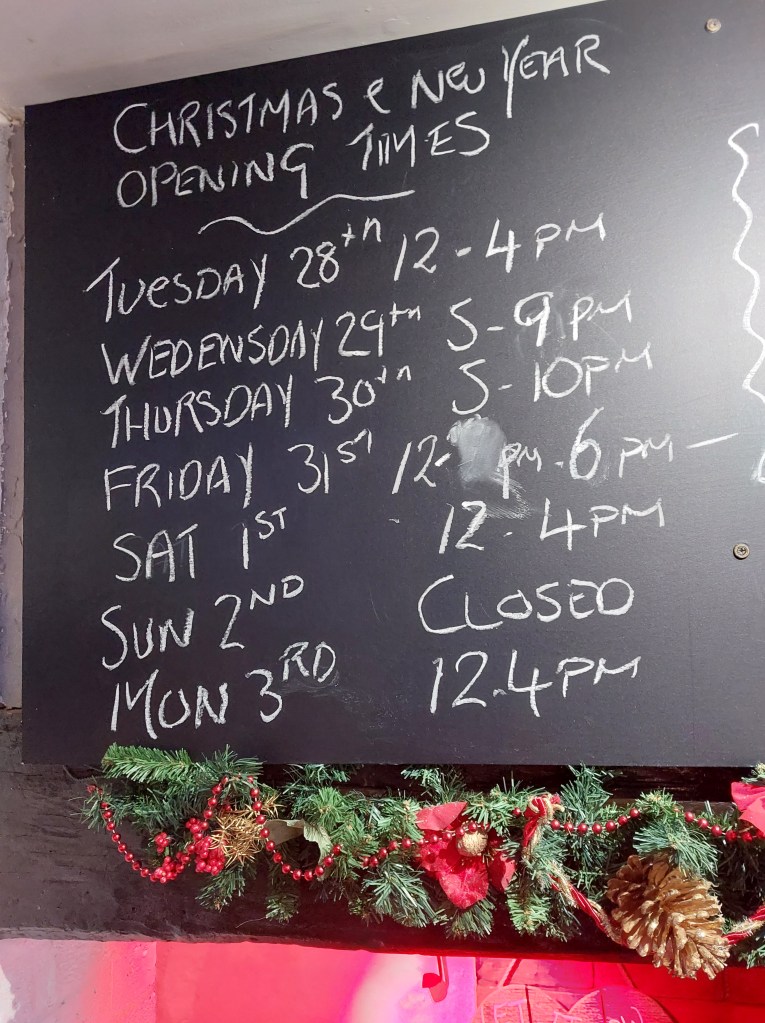 CHRISTMAS & NEW YEAR
OPENING TIMES
TUESDAY 28th 12-4PM
WEDENSDAY 29th 5-9PM
THURSDAY 30th 5-10PM
FRIDAY 31ST 12- PM-6PM-
SAT 1ST 12-4PM
SUN 2ND CLOSED
MON 3RD 12-4PM